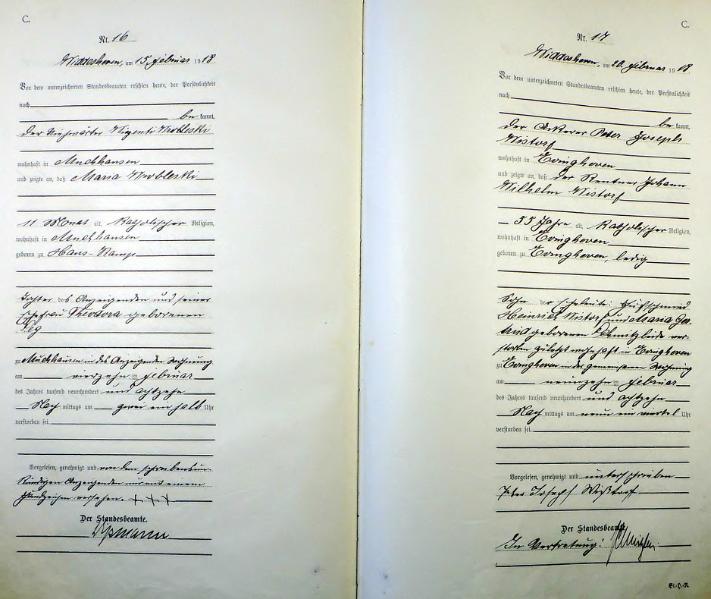 C.
Nr. 16
Widdeshoven, am 15. Februar 1918
Vor dem unterzeichneten Standesbeamten erschien heute, der Persönlichkeit
nach
be kannt,
der
wohnhaft in Muchhausen
und zeigte an, daß Maria Wrobleski
11 Monat alt, Katholischer Religion,
wohnhaft in Muchhausen
geboren zu
Tochter des Anzeigenden und seiner
Ehefrau Theodora geborenen
zu Muchhausen in des Anzeigenden Wohnung
am vierzehn Februar
des Jahres tausend neunhundert und achtzehn
Nach mittags um ein halb Uhr
verstorben sei
Vorgelesen, genehmigt und von dem schreibensun-
kundigen Anzeigenden mit einem
Handzeichen versehen. + + +
Der Standesbeamte.
C.
Nr. 17
Widdeshoven, am 20. Februar 1918
Vor dem unterzeichneten Standesbeamten erschien heute, der Persönlichkeit
nach
be kannt,
der Ackerer Peter Joseph
Wistorf
wohnhaft in Evinghoven
und zeigte an, daß der Rentner Johann
Wilhelm Wistorf
55 Jahre alt, Katholischer Religion,
wohnhaft in Evinghoven
geboren zu Evinghoven, ledig
Sohn der Eheleute: Hufschmied
Heinrich Wistorf und Maria Ger-
trud geborenen ver-
storben zuletzt wohnhaft in Evinghoven
zu Evinghoven in der gemeinsamen Wohnung
am neunzehn Februar
des Jahres tausend neunhundert und achtzehn
Nach mittags um neun ein viertel Uhr
verstorben sei
Vorgelesen, genehmigt und unterschrieben
Peter Joseph Wistorf
Der Standesbeamte.
In Vertretung: